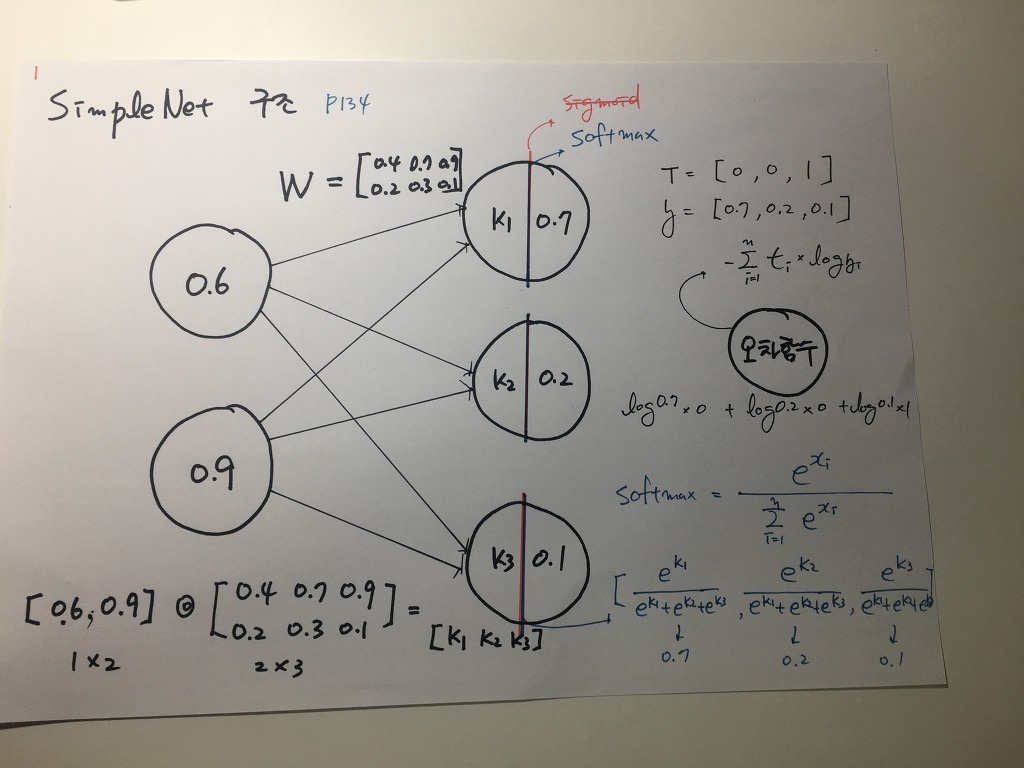 1
SimpleNet 구조 P134
sigmoid
softmax
W = [0.4 0.7 0.9
0.2 0.3 0.1]
0.6
0.9
K1 0.7
K2 0.2
K3 0.1
T = [0, 0, 1]
y = [0.7, 0.2, 0.1]
-∑ⁿᵢ₌₁ tᵢ × log yᵢ
오차함수
log0.7×0 + log0.2×0 + log0.1×1
softmax = e^xi / ∑ⁿᵢ₌₁ e^xi
[e^K1 / e^K1+e^K2+e^K3, e^K2 / e^K1+e^K2+e^K3, e^K3 / e^K1+e^K2+e^K3]
↓ ↓ ↓
0.7 0.2 0.1
[0.6, 0.9] @ [0.4 0.7 0.9
0.2 0.3 0.1] =
[K1 K2 K3]
1×2 2×3